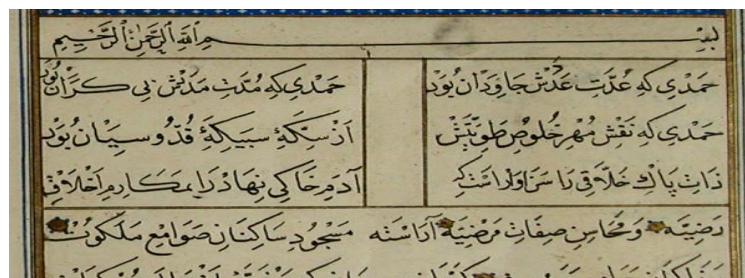 بسم الله الرحمن الرحیم
حمدی که عدّت عدش جاودان بود حمدی که مدّت مدتش بی کران بود
حمدی که نقش مهر خلوص طویتش از سکهٔ سبیکهٔ قدوسیان بود
ذات پاک خلاقی را سزاوار است که آدم خاکی نهاد را بمکارم اخلاق
رضیه و محاسن صفات مرضیه آراسته مسجود ساکنان صوامع ملکوت